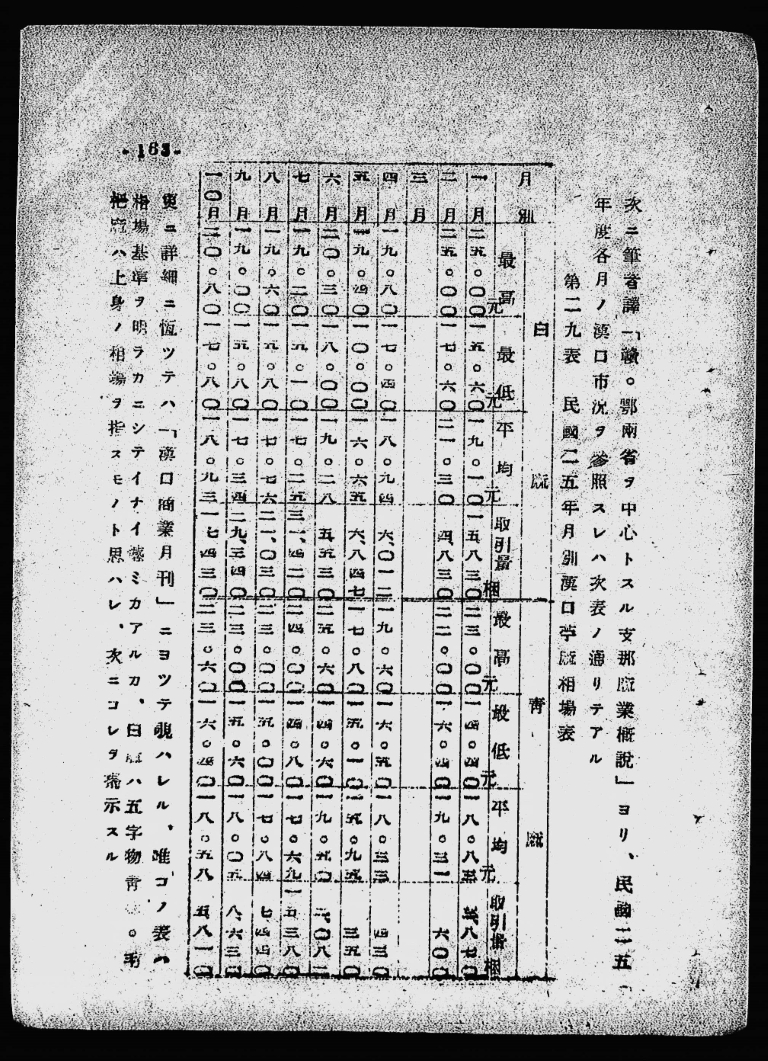 次ニ筆者譯「贛。鄂兩省ヲ中心トスル支那麻業槪說」ヨリ、民國二五
年度各月ノ漢口市況ヲ參照スレハ次表ノ通リテアル
第二九表 民國二五年月別漢口苧麻相場表
白麻 青麻
月別 最高元 最低元 平均元 取引量梱 最高元 最低元 平均元 取引量梱
一月 二五。〇〇 一五。六〇 一九。一〇 一五八三〇 二三。〇〇 一四。四〇 一八。八三 八七〇
二月 二五。〇〇 一七。六〇 二一。三〇 四、八三〇 二二。〇〇 一六。四〇 一九。三一 六〇〇
三月
四月 一九。八〇 一七。四〇 一八。九四 六、〇一二 一九。六〇 一六。五〇 一八。三三 四三〇
五月 一九。四〇 一〇。〇〇 一六。六五 六、八四七 一七。八〇 一五。一〇 一五。九五 三五〇
六月 二〇。三〇 一八。〇〇 一九。二八 五五三〇 二五。六〇 一四。六〇 一九。五〇 二、〇八二
七月 一九。二〇 一五。一〇 一七。二五 三一、四二〇 二四。〇〇 一四。八〇 一七。六九 一五三八〇
八月 一九。六〇 一五。八〇 一七。七六 二一、〇三〇 二三。〇〇 一五。〇〇 一七。八四 七、四四〇
九月 一九。〇〇 一五。八〇 一七。三四 二九、三四〇 二三。〇〇 一五。六〇 一八。〇五 八、六三〇
一〇月 二〇。八〇 一七。八〇 一八。九三 一七四三〇 二三。六〇 一六。四〇 一八。五八 五八一〇
更ニ詳細ニ恆ツテハ「漢口商業月刊」ニヨツテ覗ハレル、唯コノ表ハ
相場基準ヲ明ラカニシテイナイ憾ミカアルカ、白麻ハ五字物青麻。毛
把麻ハ上身ノ相場ヲ指スモノト思ハレ、次ニコレヲ揭示スル
-163-